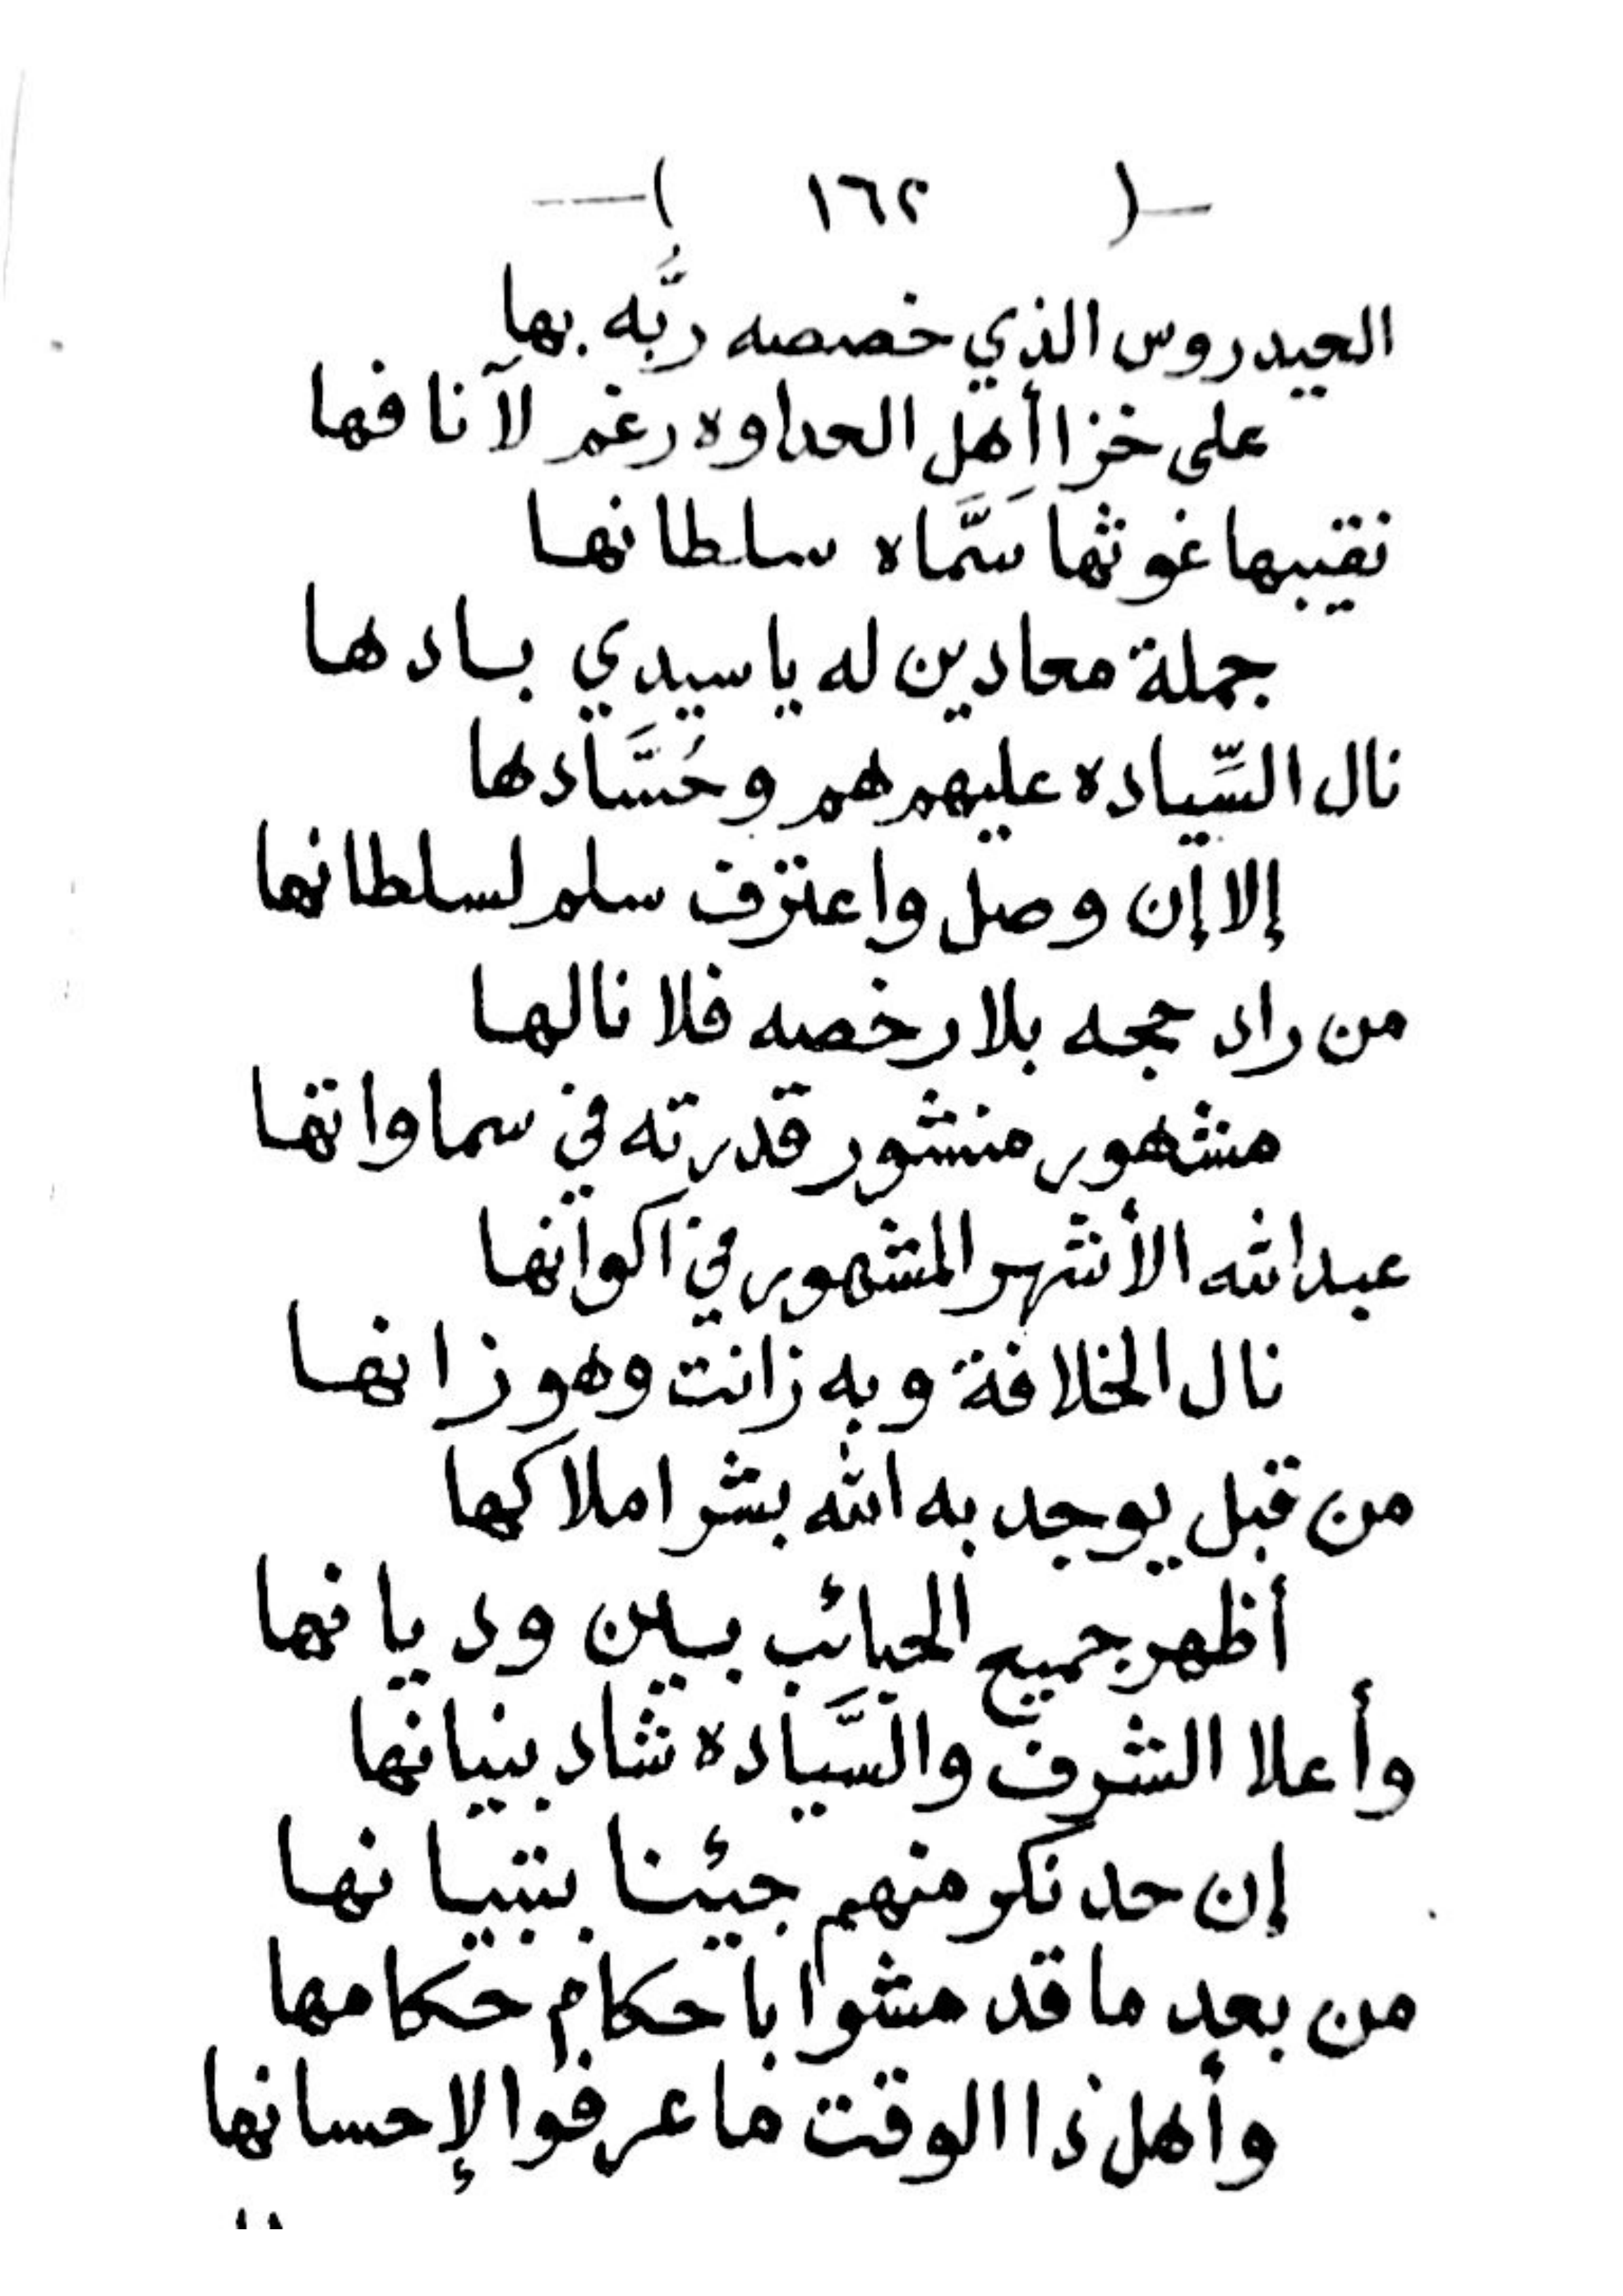 ( ١٦٢ )
العيدروس الذي خصصه ربُّه بها
على خزا أهل العداوه رغم لآنافها
نقيبها غوثها سَمَّاه سلطانها
جملة معادين له يا سيدي بادها
نال السِّياده عليهم هم وحُسَّادها
إلا إن وصل واعترف سلم لسلطانها
من راد حجه بلا رخصه فلا نالها
مشهور منشور قدرته في سماواتها
عبدالله الأشهر المشهور في اكوانها
نال الخلافة وبه زانت وهو زانها
من قبل يوجد به الله بشر املاكها
أظهر جميع الحبائب بين وديانها
وأعلا الشرف والسَّياده شاد بنيانها
إن حد نكر منهم جيئنا بتبيانها
من بعد ما قد مشوا باحكام حكامها
وأهل ذا الوقت ما عرفوا لإحسانها